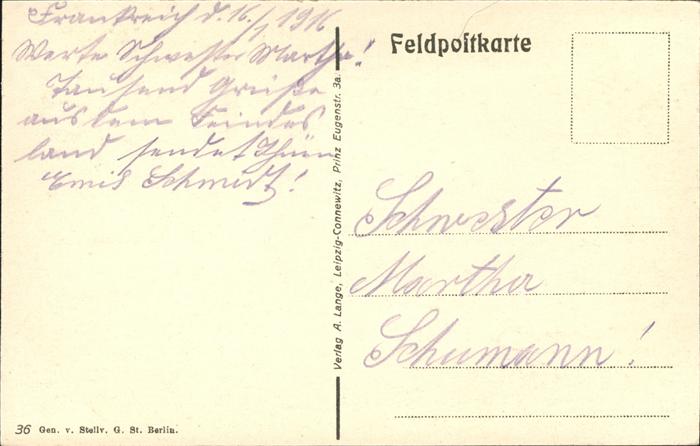 Frankreich d. 16./1. 1916
Werte Schwester Martha!
Tausend Grüße
aus dem Feindes
land sendet Ihnen
Emil Schmidt!
Feldpostkarte
Schwester
Martha
Schumann!
Verlag A. Lange, Leipzig-Connewitz, Prinz Eugenstr. 3a.
36 Gen. v. Stellv. G. St. Berlin.